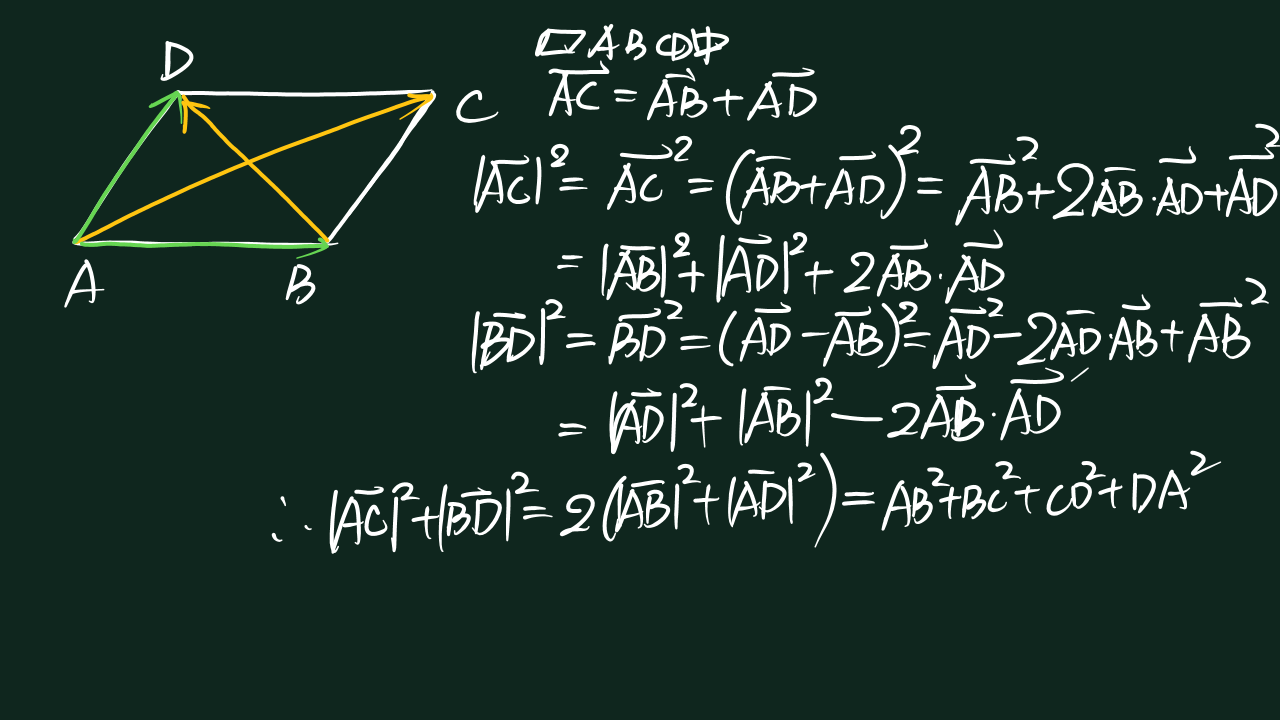 D
C
A
B
▱ABCD中
$\overrightarrow{AC} = \overrightarrow{AB} + \overrightarrow{AD}$
$|\overrightarrow{AC}|^2 = \overrightarrow{AC}^2 = (\overrightarrow{AB} + \overrightarrow{AD})^2 = \overrightarrow{AB}^2 + 2\overrightarrow{AB} \cdot \overrightarrow{AD} + \overrightarrow{AD}^2$
$= |\overrightarrow{AB}|^2 + |\overrightarrow{AD}|^2 + 2\overrightarrow{AB} \cdot \overrightarrow{AD}$
$|\overrightarrow{BD}|^2 = \overrightarrow{BD}^2 = (\overrightarrow{AD} - \overrightarrow{AB})^2 = \overrightarrow{AD}^2 - 2\overrightarrow{AD} \cdot \overrightarrow{AB} + \overrightarrow{AB}^2$
$= |\overrightarrow{AD}|^2 + |\overrightarrow{AB}|^2 - 2\overrightarrow{AB} \cdot \overrightarrow{AD}$
$\therefore |\overrightarrow{AC}|^2 + |\overrightarrow{BD}|^2 = 2(|\overrightarrow{AB}|^2 + |\overrightarrow{AD}|^2) = AB^2 + BC^2 + CD^2 + DA^2$